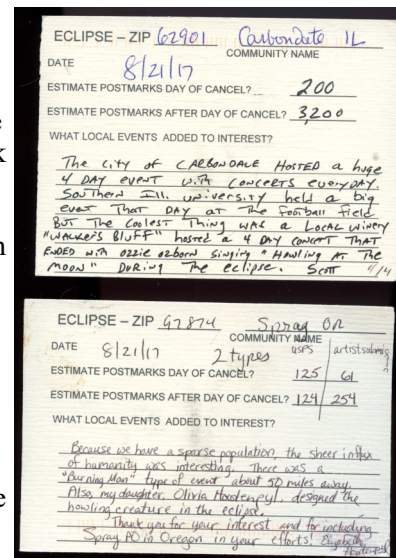 ECLIPSE – ZIP 62901 Carbondale IL
COMMUNITY NAME
DATE 8/21/17
ESTIMATE POSTMARKS DAY OF CANCEL? 200
ESTIMATE POSTMARKS AFTER DAY OF CANCEL? 3,200
WHAT LOCAL EVENTS ADDED TO INTEREST?
The city of CARBONDALE HOSTED a huge
4 DAY event with CONCERTS everyday.
Southern Ill. university held a big
event That DAY at The football field
BUT The Coolest Thing was a Local winery
"WALKER'S BLUFF" hosted a 4 DAY concert THAT
ENDED with ozzie ozborn singing "Howling AT The
MOON" DURING The eclipse. Scott
4/14
ECLIPSE – ZIP 97874 Spray OR
COMMUNITY NAME
DATE 8/21/17 2 types USPS
ESTIMATE POSTMARKS DAY OF CANCEL? 125 61
ESTIMATE POSTMARKS AFTER DAY OF CANCEL? 124 254
WHAT LOCAL EVENTS ADDED TO INTEREST?
Because we have a sparse population, the sheer influx
of humanity was interesting. There was a
"Burning Man" type of event about 50 miles away.
Also, my daughter, Olivia designed the
howling creature in the eclipse.
Thank you for your interest and for including
Spray PO in Oregon in your efforts! Elizabeth